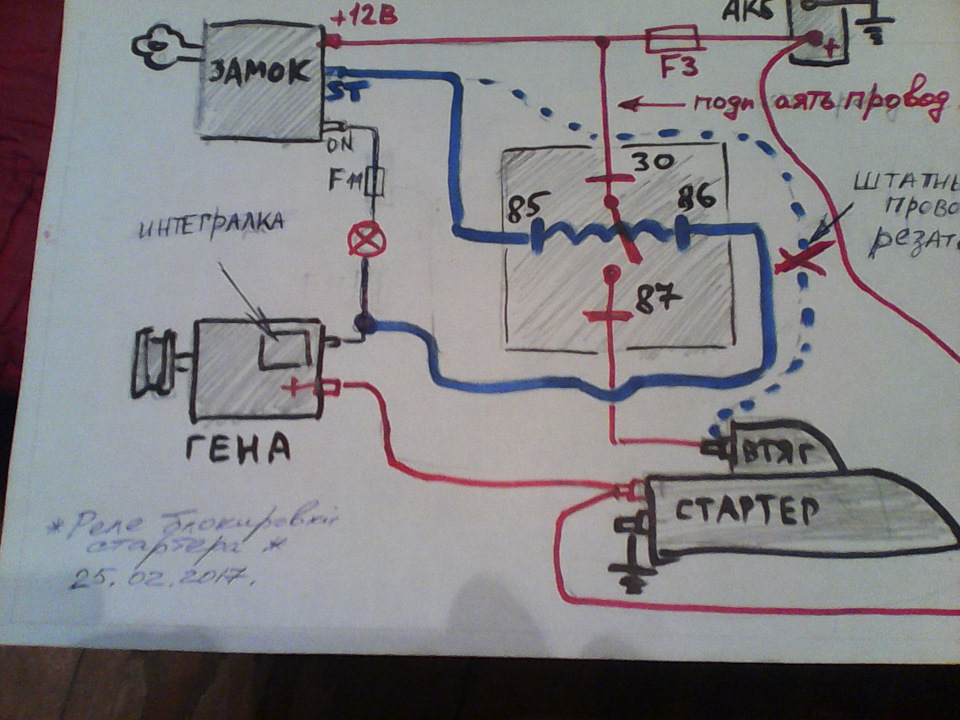 +12В
АКБ
ЗАМОК
F3
+
ST
← подп аять провод
ON
30
F11
85
86
ИНТЕГРАЛКА
87
+
ГЕНА
ВТЯГ
СТАРТЕР
*Реле блокировки
стартера *
25.02.2017.